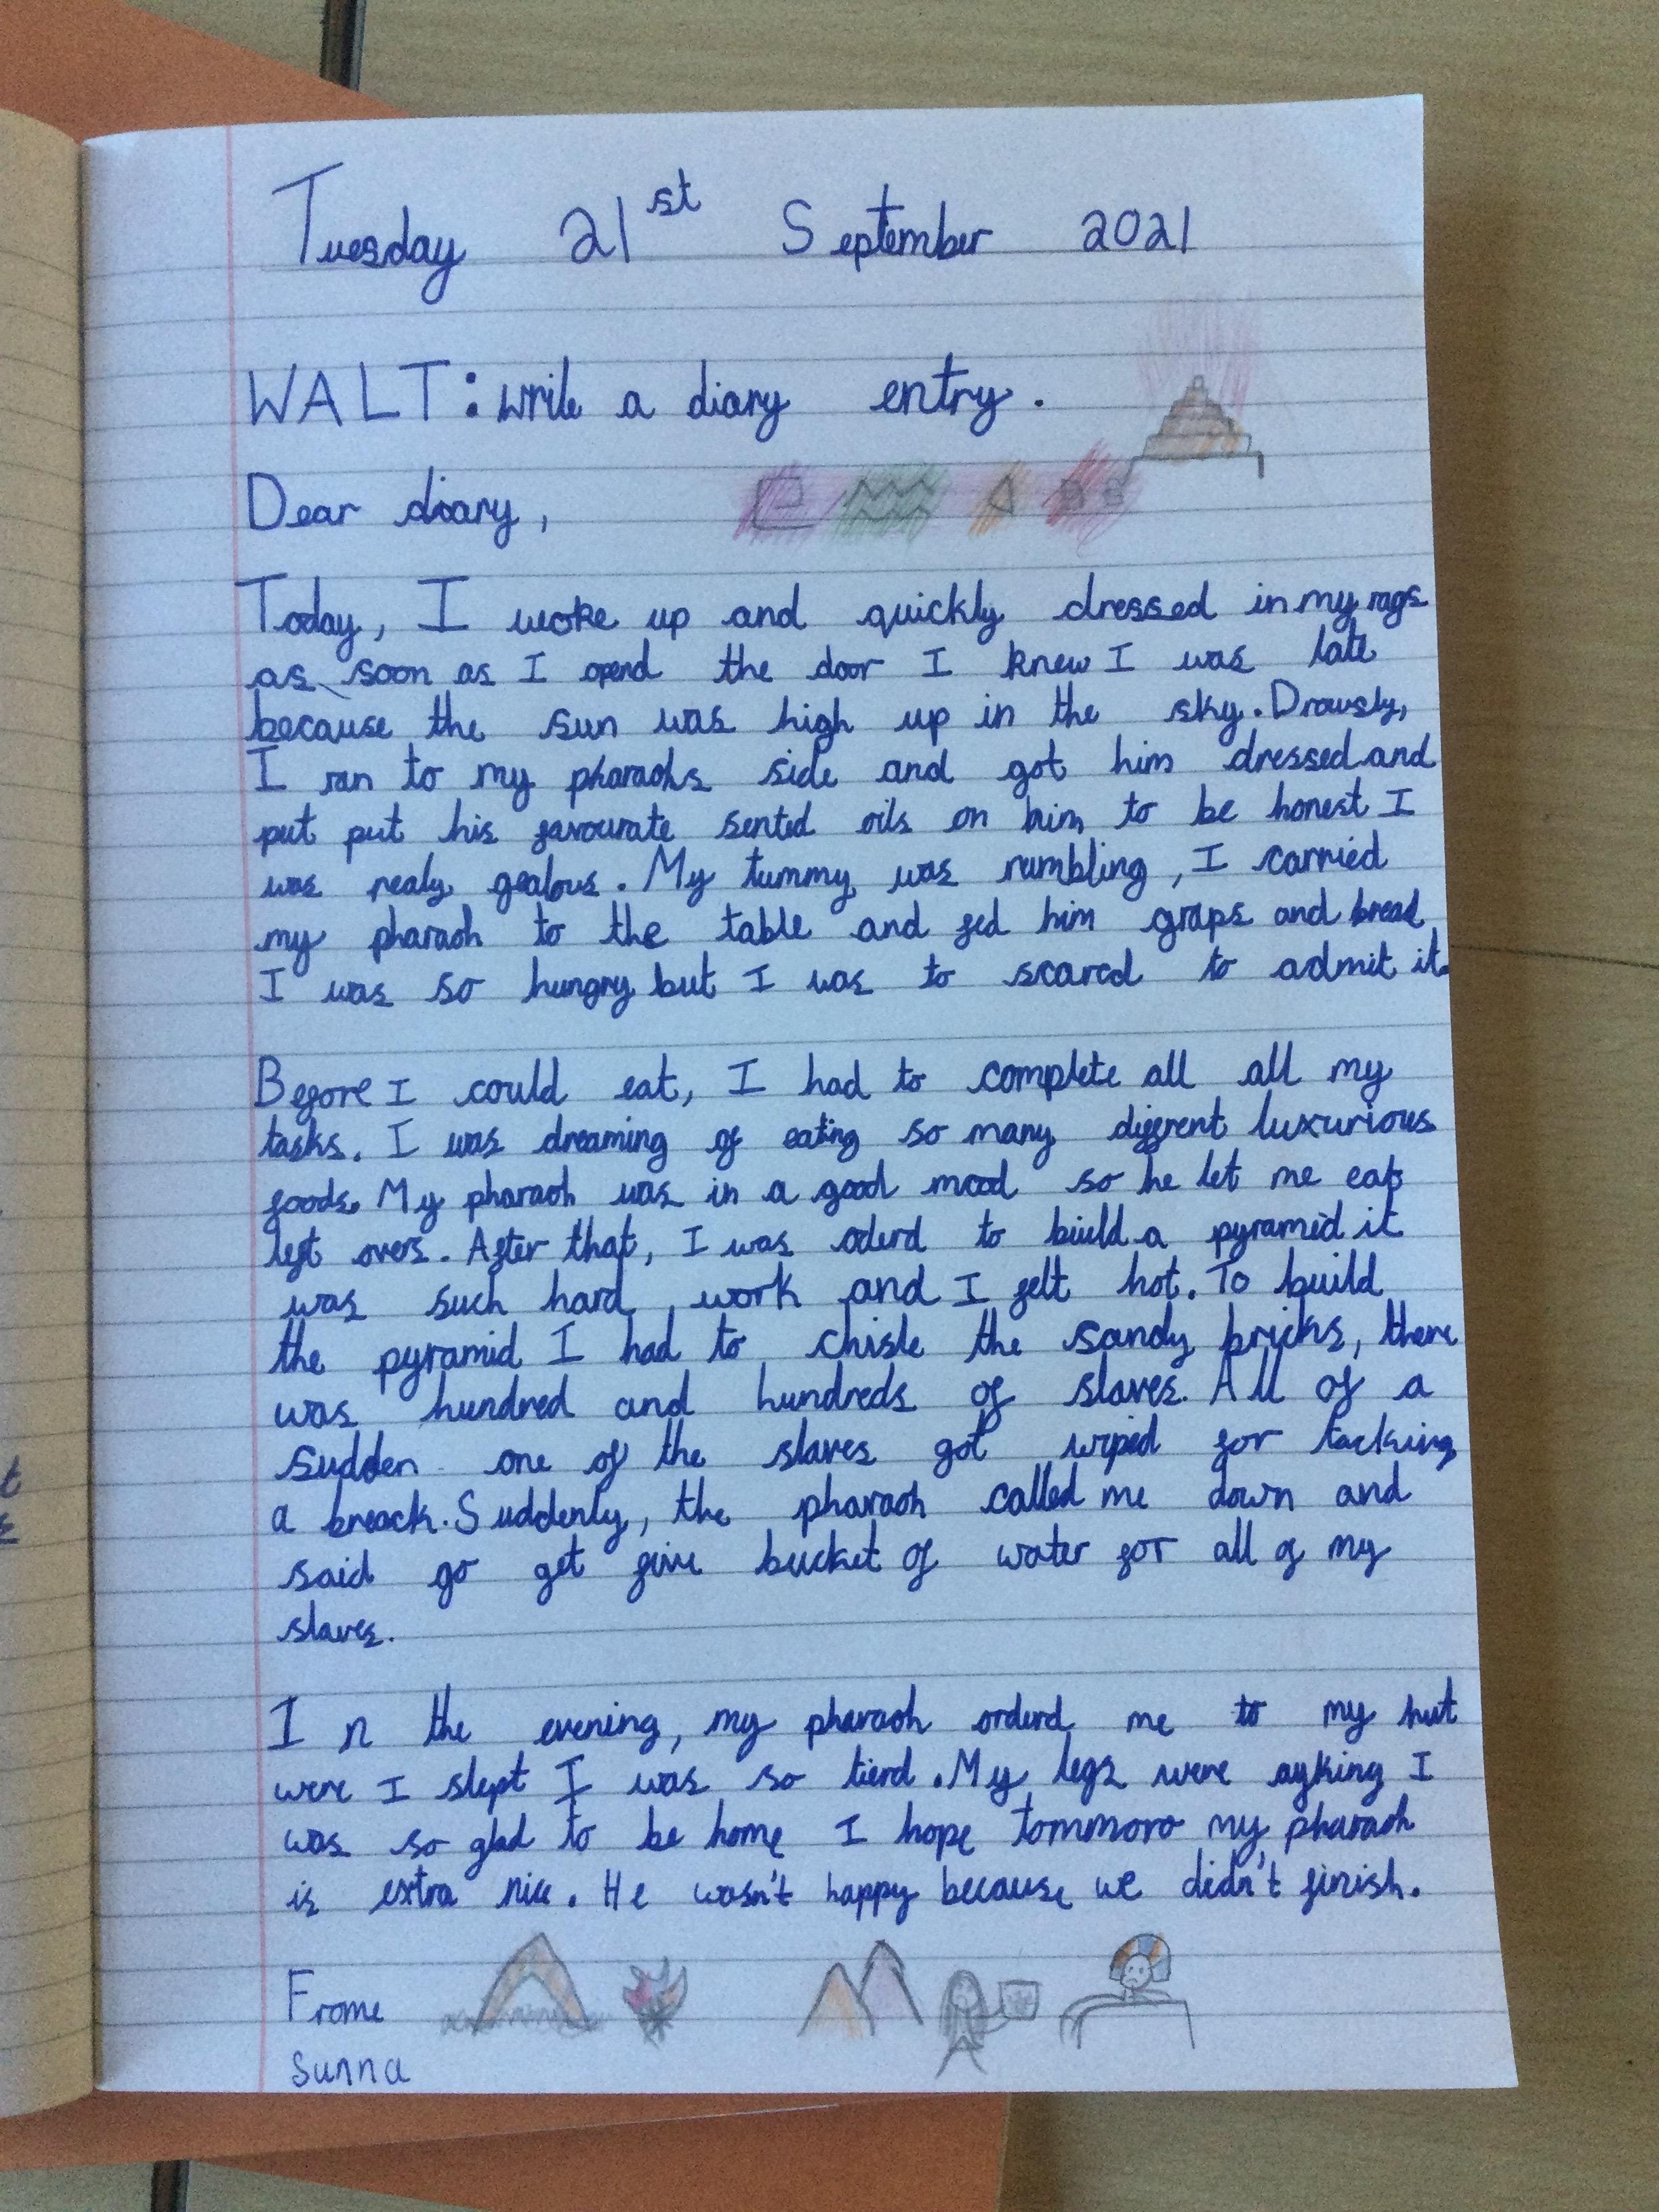 Tuesday 21st September 2021
WALT: write a diary entry.
Dear diary,
Today, I woke up and quickly dressed in my rags
as soon as I opend the door I knew I was late
because the sun was high up in the sky. Drowsly,
I ran to my pharaohs side and got him dressed and
put put his favourate sented oils on him to be honest I
was realy gealous. My tummy was rumbling, I carried
my pharaoh to the table and fed him graps and bread
I was so hungry but I was to scared to admit it.
Before I could eat, I had to complete all all my
tasks. I was dreaming of eating so many different luxurious
foods. My pharaoh was in a good mood so he let me eat
left overs. After that, I was oderd to build a pyramid it
was such hard work and I felt hot. To build
the pyramid I had to chisle the sandy bricks, there
was hundred and hundreds of slaves. All of a
sudden one of the slaves got wiped for tacking
a breack. Suddenly, the pharaoh called me down and
said go get five bucket of water for all of my
slaves.
In the evening, my pharaoh orderd me to my hut
were I slept I was so tierd. My legs were ayking I
was so glad to be home I hope tommoro my pharaoh
is extra nice. He wasn't happy because we didn't finish.
Frome
Sunna